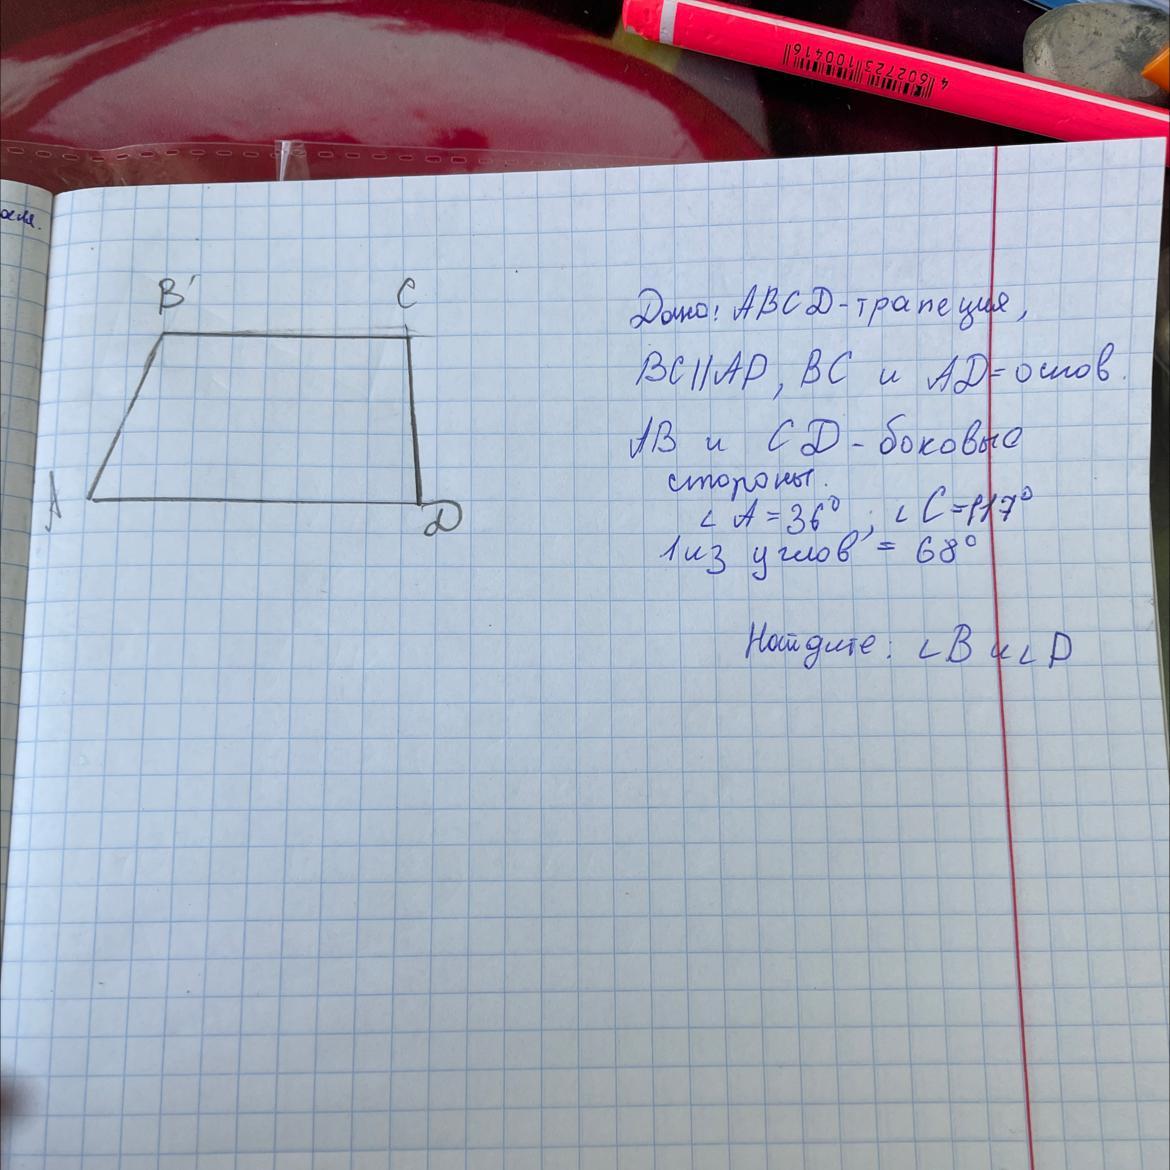 4 602723 100416
B'
C
A
D
Дано: ABCD-трапеция,
BC||AD, BC и AD=основ.
AB и CD - боковые
стороны.
∠A=36°; ∠C=117°
1 из углов = 68°
Найдите: ∠B и ∠D